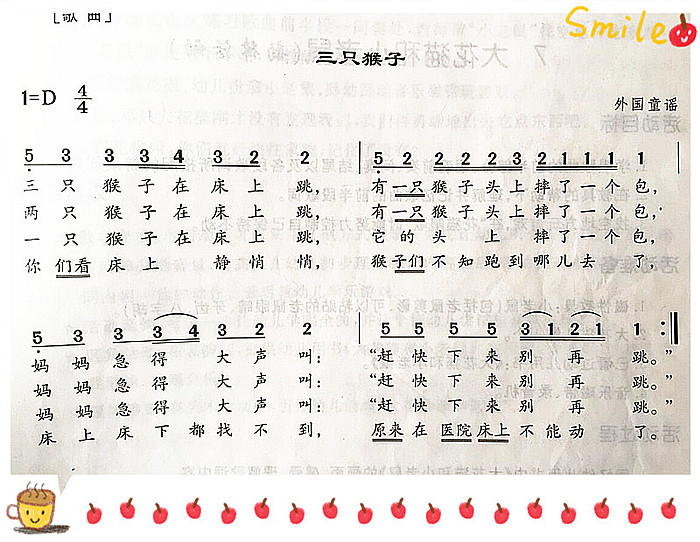 [歌曲]
Smile
三只猴子
1=D 4/4
外国童谣
5 3 3 3 3 4 3 2 2 | 5 5 2 2 2 2 3 2 1 1 1 1
三只猴子在床上跳, 有一只猴子头上摔了一个包,
两只猴子在床上跳, 有一只猴子头上摔了一个包,
一只猴子在床上跳, 它的头上摔了一个包,
你们看床上静悄悄, 猴子们不知跑到哪儿去了,
5 5 3 3 4 3 2 2 | 5 5 5 5 3 2 1 :
妈妈急得大声叫: “赶快下来别再跳。”
妈妈急得大声叫: “赶快下来别再跳。”
妈妈急得大声叫: “赶快下来别再跳。”
床上床下都找不到, 原来在医院床上不能动了。